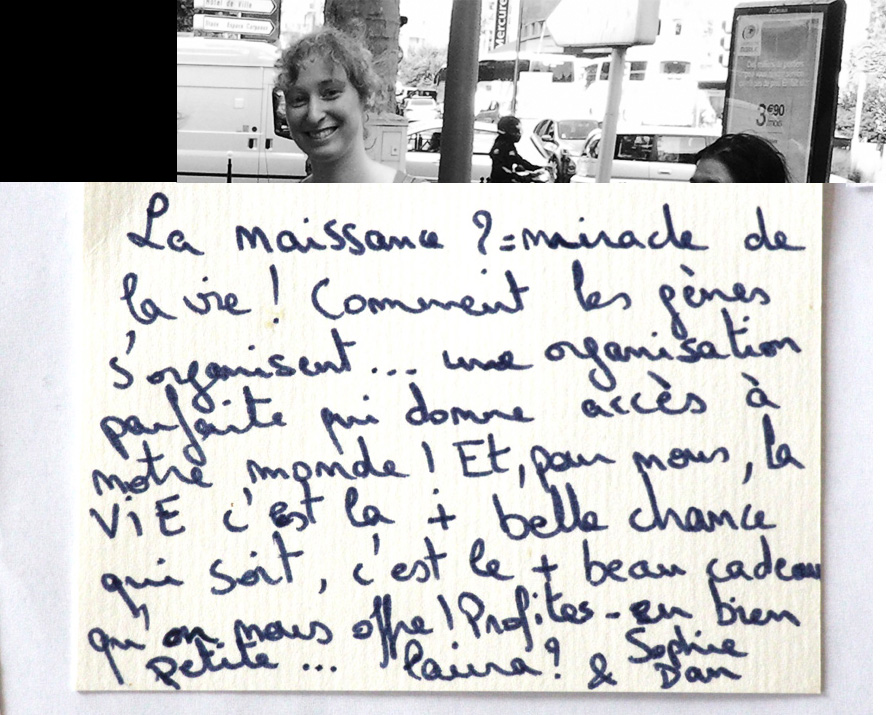 Hôtel de Ville
Mercure
3€90
La naissance ? = miracle de
la vie ! Comment les gènes
s'organisent... une organisation
parfaite qui donne accès à
notre monde ! Et, pour nous, la
ViE c'est la + belle chance
qui soit, c'est le + beau cadeau
qu'on nous offre ! Profites-en bien
petite... laura ? & Sophie
Dan